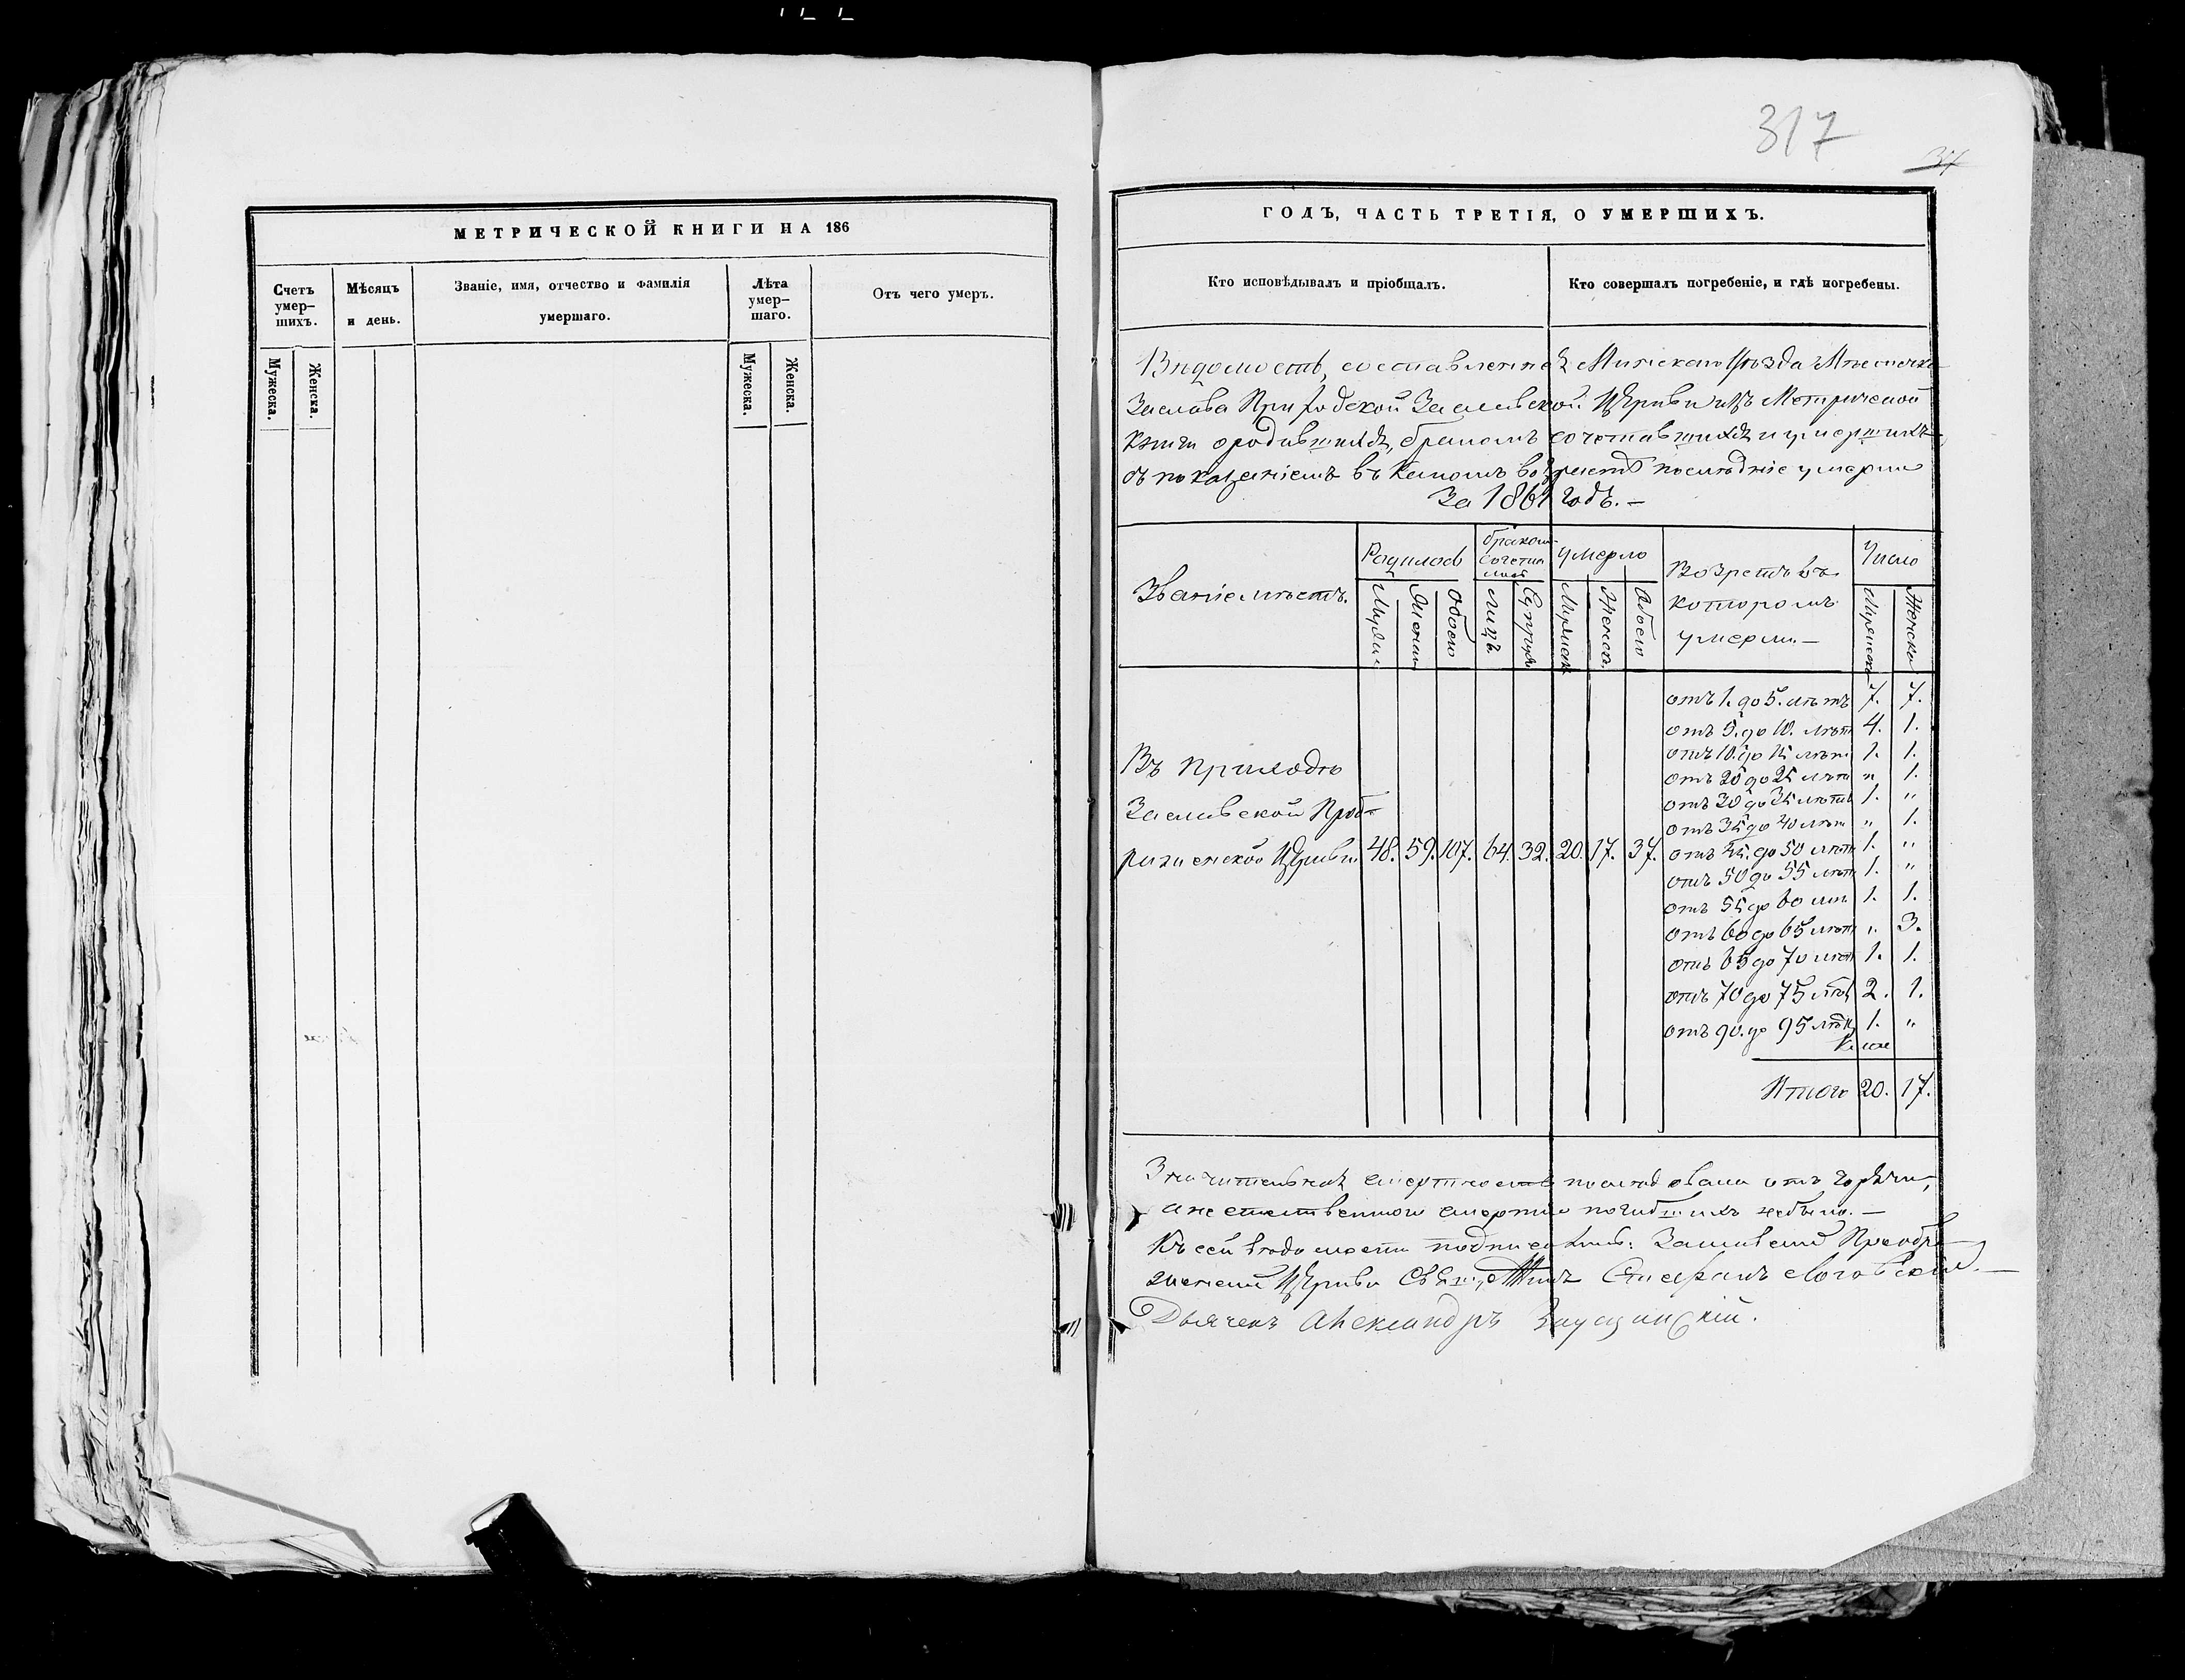 317
37
МЕТРИЧЕСКОЙ КНИГИ НА 186
Счетъ умер-шихъ.
Мѣсяцъ и день.
Званіе, имя, отчество и фамилія умершаго.
Лѣта умер-шаго.
Отъ чего умеръ.
Мужеска.
Женска.
Мужеска.
Женска.
ГОДЪ, ЧАСТЬ ТРЕТІЯ, О УМЕРШИХЪ.
Кто исповѣдывалъ и пріобщалъ.
Кто совершалъ погребеніе, и гдѣ погребены.
Вѣдомость, составленная Минскаго Уѣзда Мѣстечка
Заслава Приходской Заславской Церкви изъ Метрической
книги о родившихся, бракомъ сочетавшихся и умершихъ
съ показаніемъ въ какомъ возрастѣ послѣдніе умерли
За 1861 годъ.—
Званіе мѣстъ.
Родилось
бракомъ сочеталось
умерло
Возрастъ въ
которомъ
умерли.—
Число
Мужеска
Женска
Обоего
Лицъ
Супруж
Мужеска
Женска
Обоего
Мужеска
Женска
отъ 1. до 5. лѣтъ 7. 7.
отъ 5. до 10. лѣтъ 4. 1.
отъ 10. до 15 лѣтъ 1. 1.
отъ 20 до 25 лѣтъ „ 1.
отъ 30 до 35 лѣтъ 1. „
отъ 35 до 40 лѣтъ „ 1.
Въ приходѣ
Заславской Преоб-
раженской Церкви 48. 59. 107. 64. 32. 20. 17. 37. отъ 45. до 50 лѣтъ 1. „
отъ 50 до 55 лѣтъ 1. „
отъ 55 до 60 лѣтъ 1. 1.
отъ 60 до 65 лѣтъ „ 3.
отъ 65 до 70 лѣтъ 1. 1.
отъ 70 до 75 лѣтъ 2. 1.
отъ 90. до 95 лѣтъ 1. „
Итого 20. 17.
Значительная смертность послѣдовала отъ горячки,
а неестественною смертію погибшихъ небыло.—
Къ сей вѣдомости подписались: Заславской Преобра-
женской Церкви Священникъ Стефанъ Логовскій.—
Дьячекъ Александръ